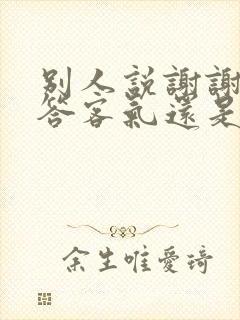 別人説謝謝
答客氣還是
余生唯愛琦